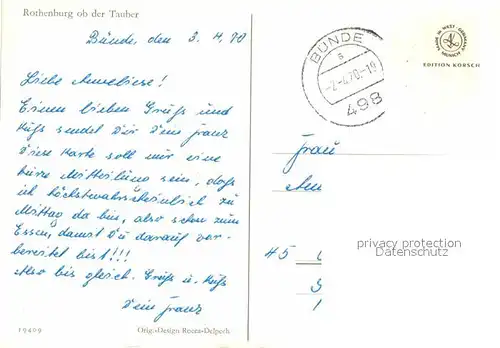 Rothenburg ob der Tauber
Bünde, den 3. 4. 70
Liebe Anneliese!
Einen lieben Gruß und
Kuß sendet Dir Dein Franz
Diese Karte soll nur eine
kurze Mitteilung sein, daß
ich höchstwahrscheinlich zu
Mittag da bin, also schon zum
Essen, damit Du darauf vor-
bereitet bist!!!
Also bis gleich. Gruß u. Kuß
Dein Franz
19409
Orig.-Design Rocca-Delpech
BÜNDE
a
-2.4.70.-19
498
MADE IN WEST-GERMANY
MÜNSCH
EDITION KORSCH
Frau
Ann
45
privacy protection
Datenschutz